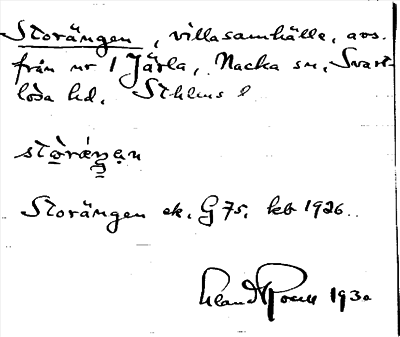 Storängen, villasamhälle, avs.
från nr 1 Järla, Nacka sn, Svart-
lösa hd, Sthlms l
Storängen ek. G 75, kb 1926.
1930